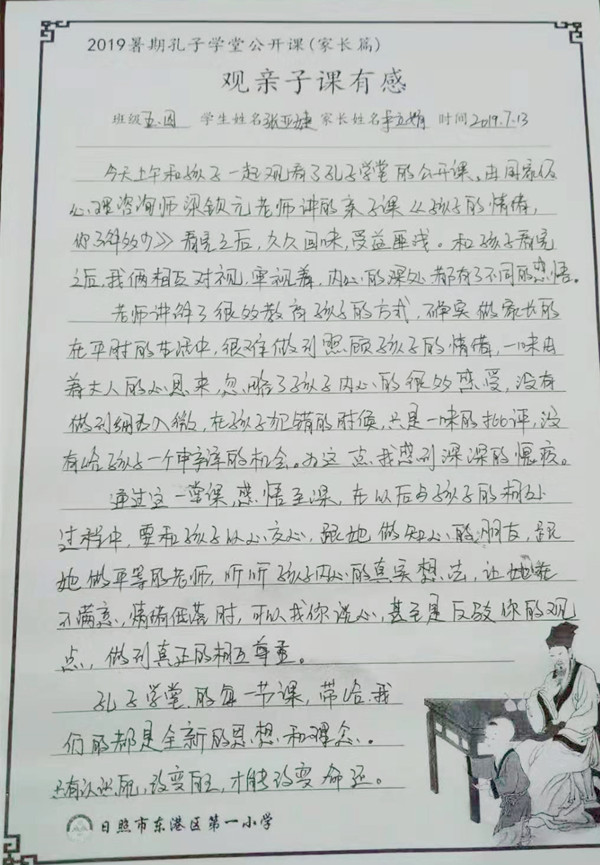 2019暑期孔子学堂公开课(家长篇)
观亲子课有感
班级五.四 学生姓名张亚婕 家长姓名 时间2019.7.13
今天上午和孩子一起观看了孔子学堂的公开课。由国家级
心理咨询师梁钦元老师讲的亲子课《孩子的情绪,
你了解多少》看完之后,久久回味,受益匪浅。和孩子看完
之后,我俩相互对视,审视着,内心的深处都有了不同的感悟。
老师讲解了很多教育孩子的方式,确实做家长的
在平时的生活中,很难做到照顾孩子的情绪,一味由
着大人的心思来,忽略了孩子内心的很多感受,没有
做到细致入微,在孩子犯错的时候,只是一味的批评,没
有给孩子一个申辩的机会。为这点,我感到深深的愧疚。
通过这一堂课,感悟至深,在以后与孩子的相处
过程中,要和孩子以心交心,跟她做知心的朋友,跟
她做平等的老师,听听孩子内心的真实想法,让她在
不满意,情绪低落时,可以找你谈心,甚至是反驳你的观
点,做到真正的相互尊重。
孔子学堂的每一节课,带给我
们的都是全新的思想和理念。
只有认识,改变自己,才能改变命运。
日照市东港区第一小学